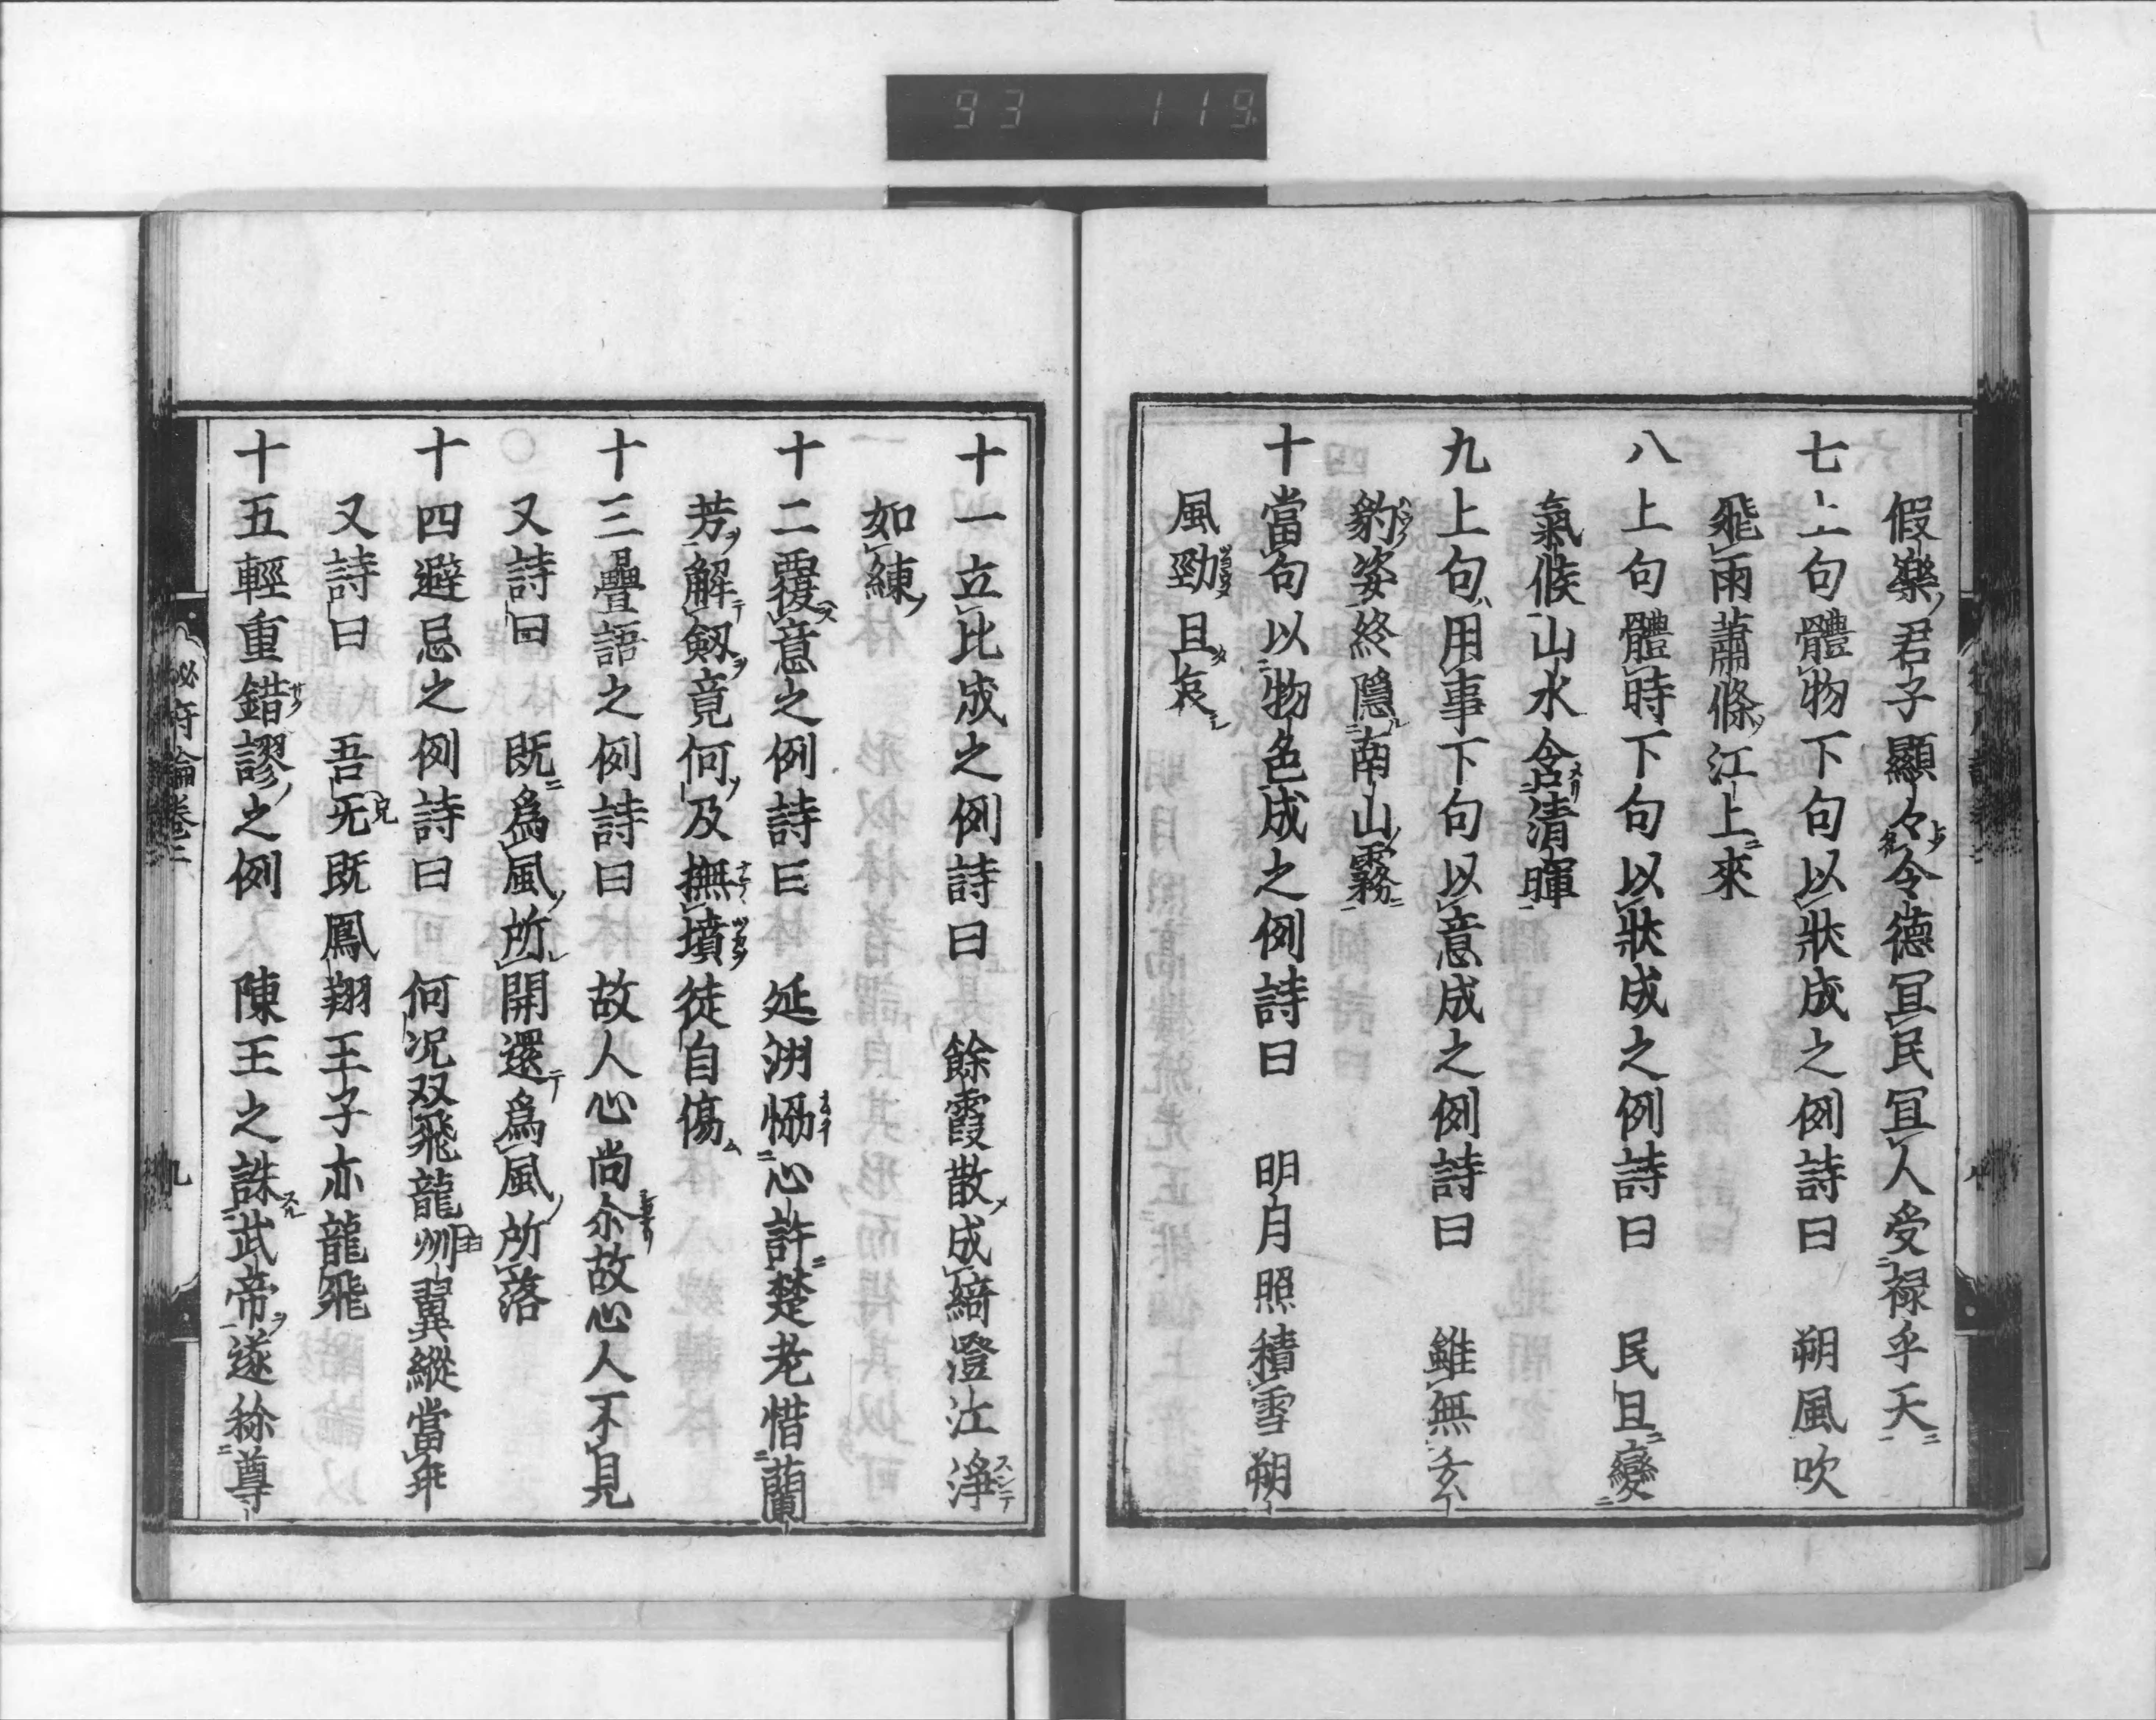 93 119
假樂君子顯々令德冝民冝人受禄乎天
七上句體物下句以狀成之例詩曰 朔風吹
飛雨蕭條江上來
八上句體時下句以狀成之例詩曰 民旦變
氣候山水含清暉
九上句用事下句以意成之例詩曰 雖無玄
豹姿終隱南山霧
十當句以物色成之例詩曰 明月照積雪朔
風勁且哀
十一立比成之例詩曰 餘霞散成綺澄江淨
如練
十二覆意之例詩曰 延洲協心許楚老惜蘭
芳解劔竟何及撫墳徒自傷
十三疊語之例詩曰 故人心尚尒故心人不見
又詩曰 既為風所開還為風所落
十四避忌之例詩曰 何况双飛龍翼縱當乖
又詩曰 吾兄既鳳翔王子亦龍飛
十五輕重錯謬之例 陳王之誄武帝遂稱尊
秘府論卷三 九